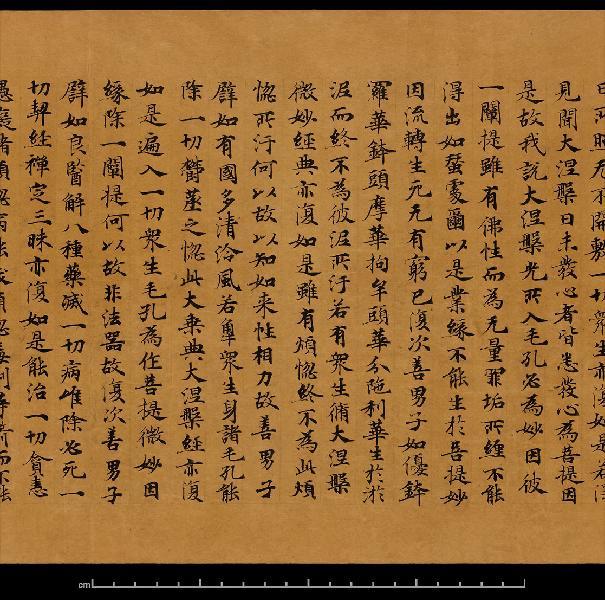 日所照无不開敷一切衆生亦復如是若得
見聞大涅槃日未發心者皆悉發心為菩提因
是故我說大涅槃光所入毛孔必為妙因彼
一闡提雖有佛性而為无量罪垢所纏不能
得出如蚕處爾以是業緣不能生於菩提妙
因流轉生死无有窮已復次善男子如優鉢
羅華鉢頭摩華拘牟頭華分陁利華生於淤
泥而終不為彼泥所汙若有衆生脩大涅槃
微妙經典亦復如是雖有煩惚終不為此煩
惚所汙何以故以知如来性相力故善男子
辟如有國多清冷風若𮗚衆生身諸毛孔能
除一切欝蒸之惚此大乗典大涅槃經亦復
如是遍入一切衆生毛孔為作菩提微妙因
緣除一闡提何以故非法器故復次善男子
辟如良醫解八種藥滅一切病唯除必死一
切契經禪定三昧亦復如是能治一切貪恚
愚癡諸煩惚病能拔煩惚毒刾等箭而不能